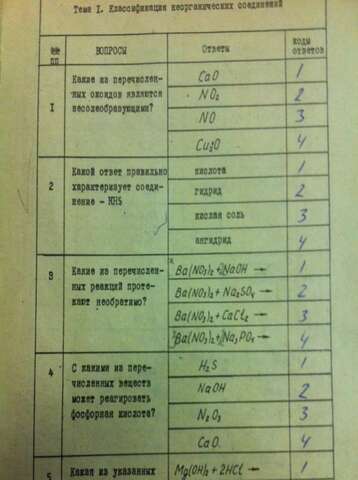 Тема I. Классификация неорганических соединений
№№ пп
ВОПРОСЫ
Ответы
коды ответов
I
Какие из перечислен-
ных оксидов являются
несолеобразующими?
CaO 1
NO₂ 2
NO 3
Cu₂O 4
2
Какой ответ правильно
характеризует соеди-
нение - KHS
кислота 1
гидрид 2
кислая соль 3
ангидрид 4
3
Какие из перечислен-
ных реакций проте-
кают необратимо?
Ba(NO₃)₂ + NaOH → 1
Ba(NO₃)₂ + Na₂SO₄ → 2
Ba(NO₃)₂ + CaCl₂ → 3
Ba(NO₃)₂ + Na₃PO₄ → 4
4
С какими из пере-
численных веществ
может реагировать
фосфорная кислота?
H₂S 1
NaOH 2
N₂O₃ 3
CaO 4
5
Какая из указанных
Mg(OH)₂ + 2HCl → 1